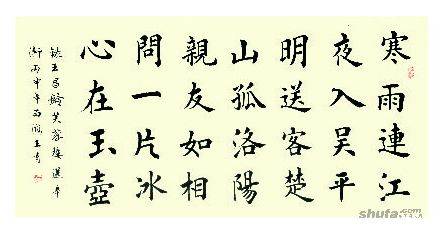 寒雨連江
夜入吴平
明送客楚
山孤洛陽
親友如相
問一片冰
心在玉壺
錄王昌齡芙蓉樓送辛
漸丙申年
shufa.com